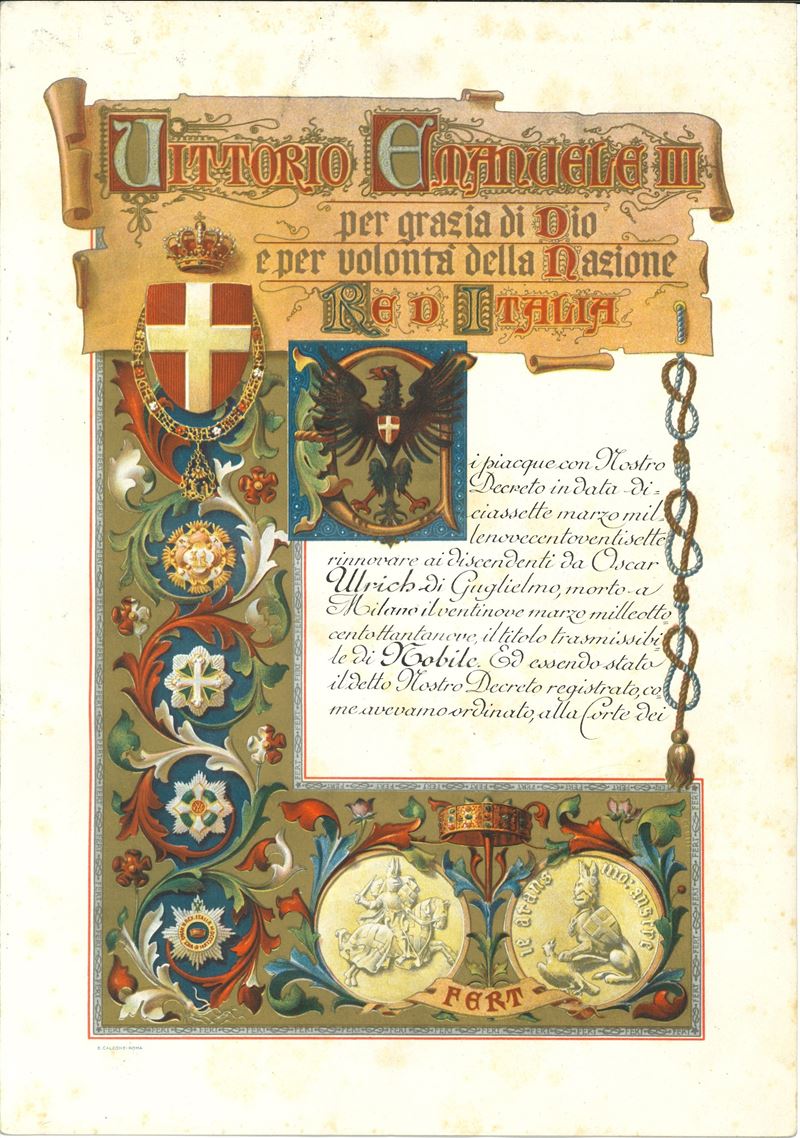 VITTORIO EMANUELE III
per grazia di Dio
e per volontà della Nazione
RE D ITALIA
i piacque con Nostro
Decreto in data di=
ciassette marzo mil=
lenovecentoventisette
rinnovare ai discendenti da Oscar
Ulrich di Guglielmo, morto a
Milano il ventinove marzo milleotto=
centottantanove, il titolo trasmissibi=
le di Nobile. Ed essendo stato
il detto Nostro Decreto registrato, co=
me avevamo ordinato, alla Corte dei
je atans
mo: anstre
FERT